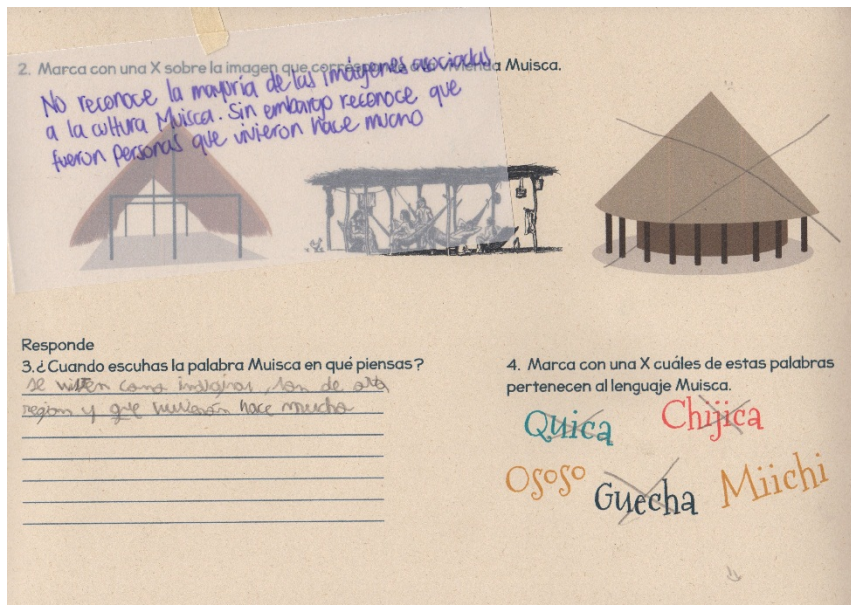 2. Marca con una X sobre la imagen que corresponde a la vivienda Muisca.
No reconoce la mayoría de las imágenes asociadas
a la cultura Muisca. Sin embargo reconoce que
fueron personas que vivieron hace mucho
Responde
3.¿Cuando escuhas la palabra Muisca en qué piensas?
se visten como indiginas, son de otra
region y que vivieron hace mucho
4. Marca con una X cuáles de estas palabras
pertenecen al lenguaje Muisca.
Quica Chijica
Ososo Guecha Miichi